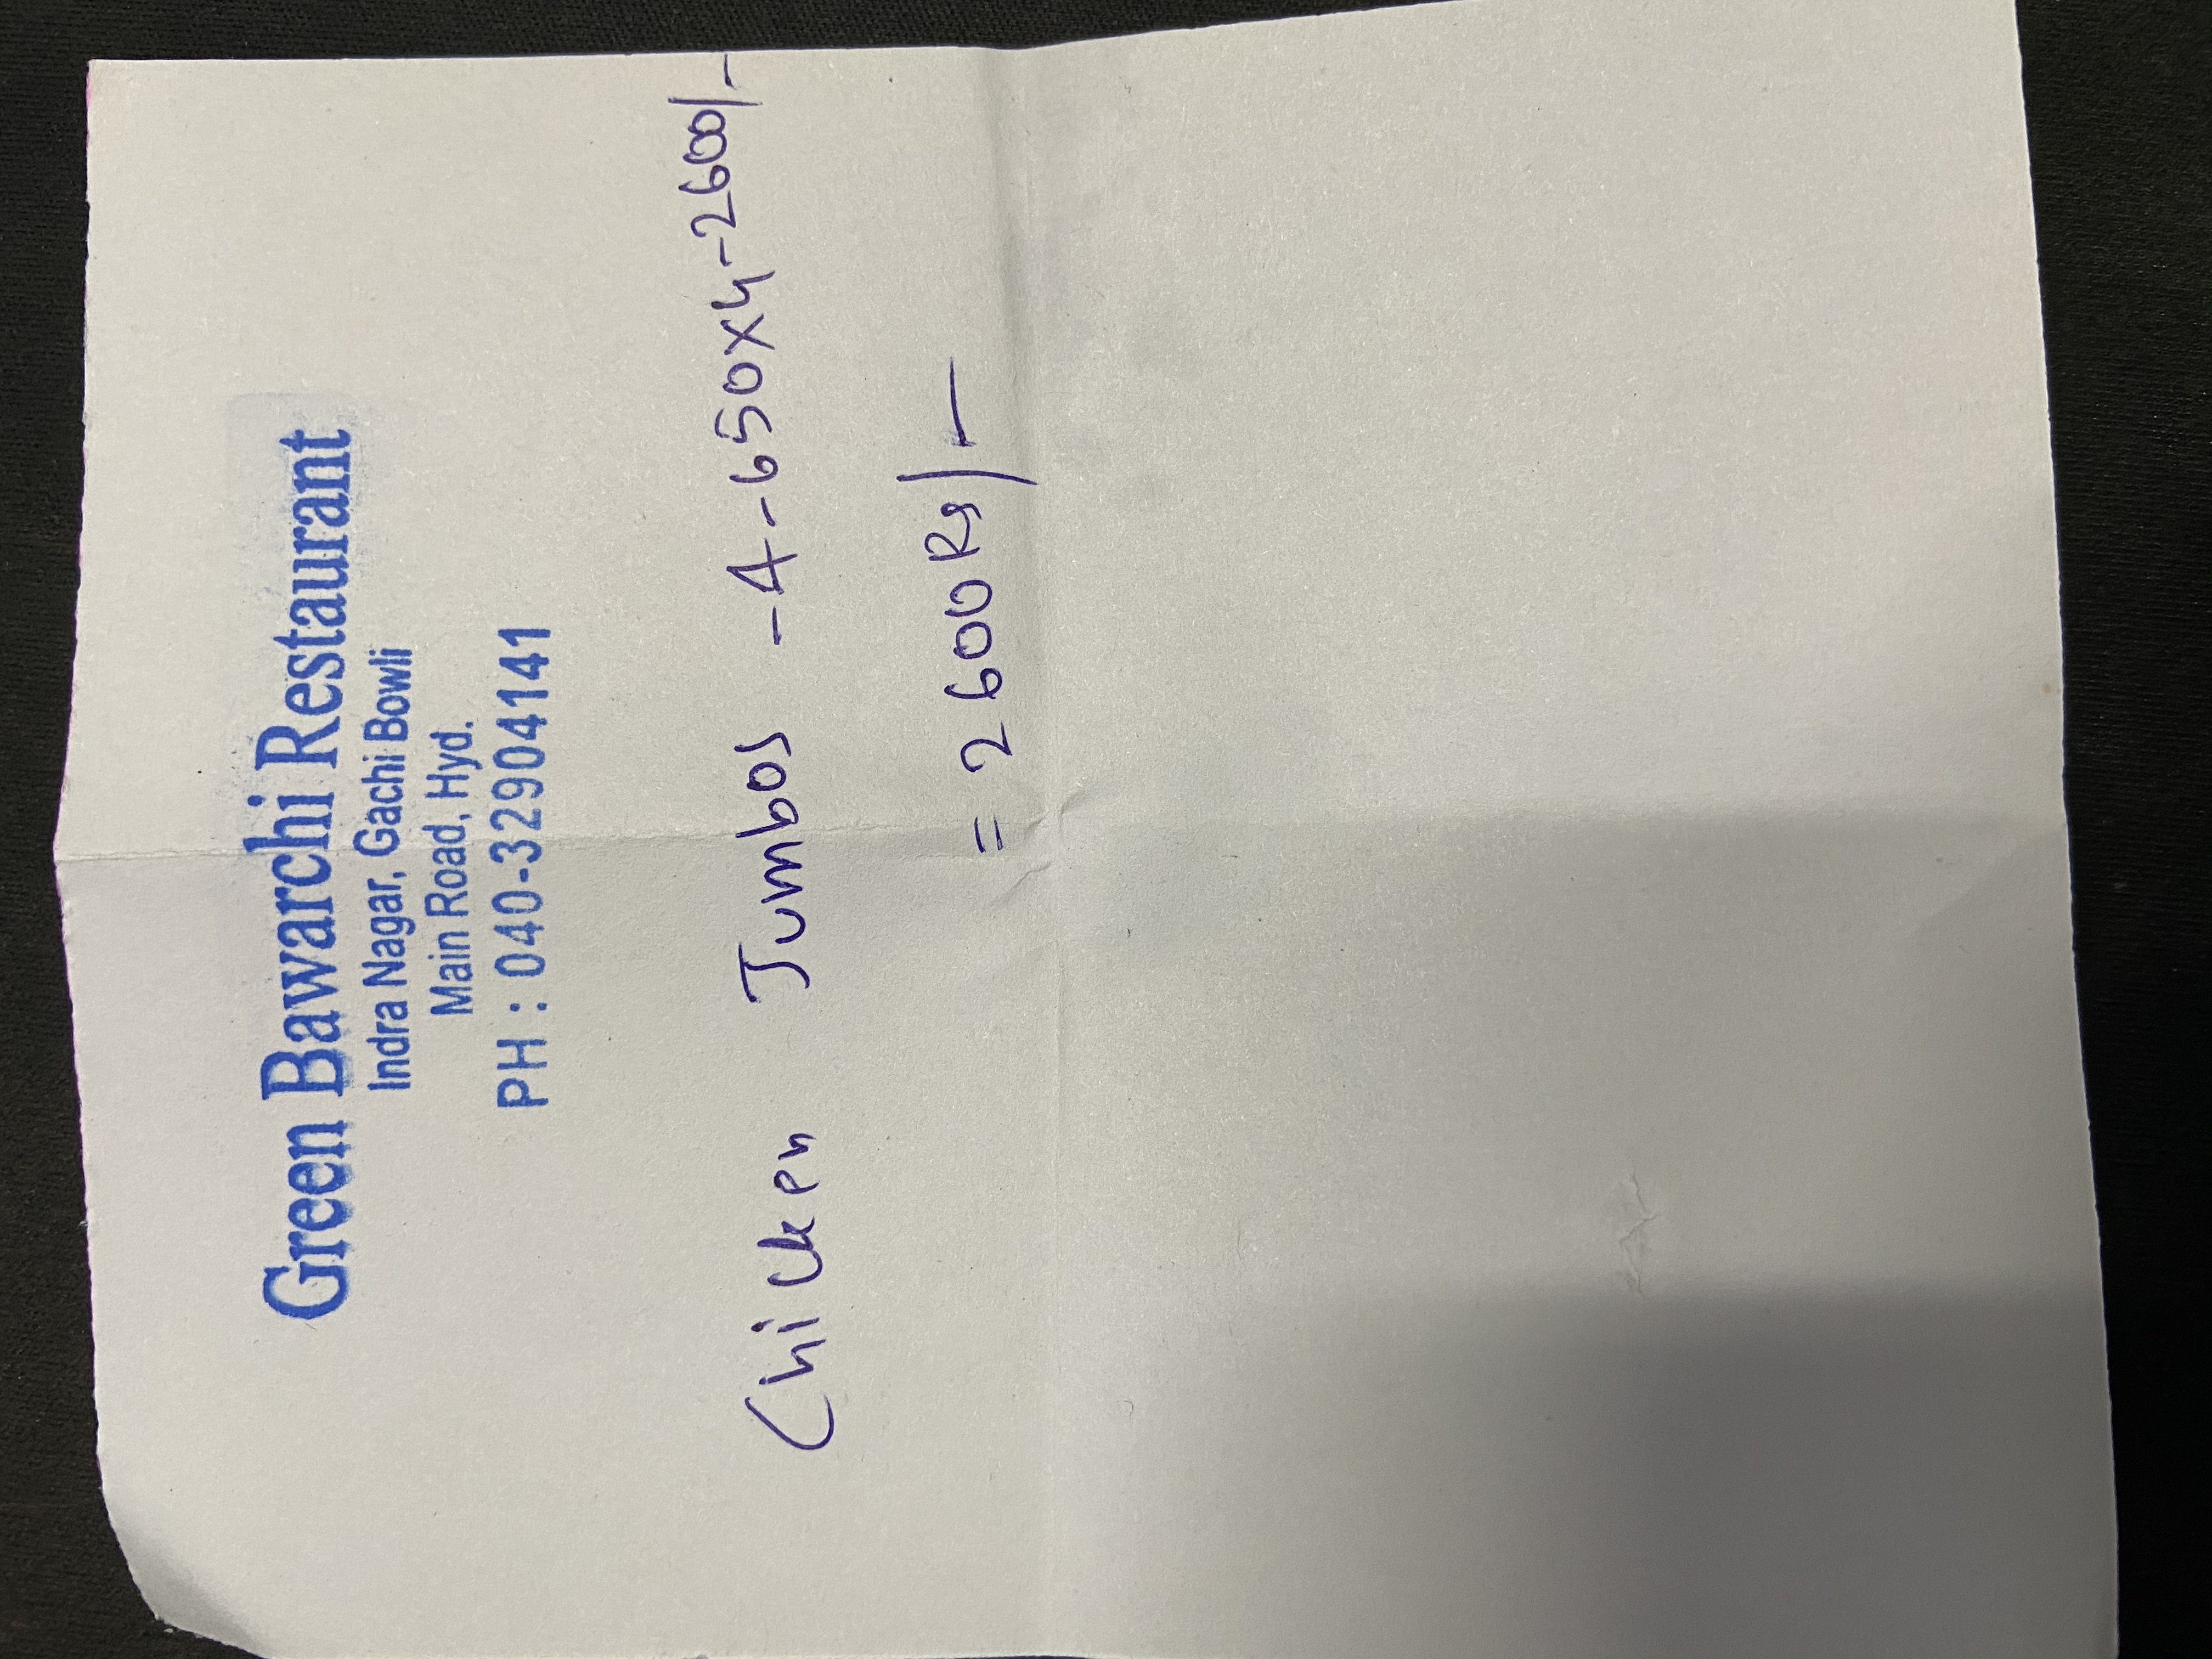 Green Bawarchi Restaurant
Indra Nagar, Gachi Bowli
Main Road, Hyd.
PH : 040-32904141
Chicken Jumbos -4-650x4-2600/-
= 2600Rs/-